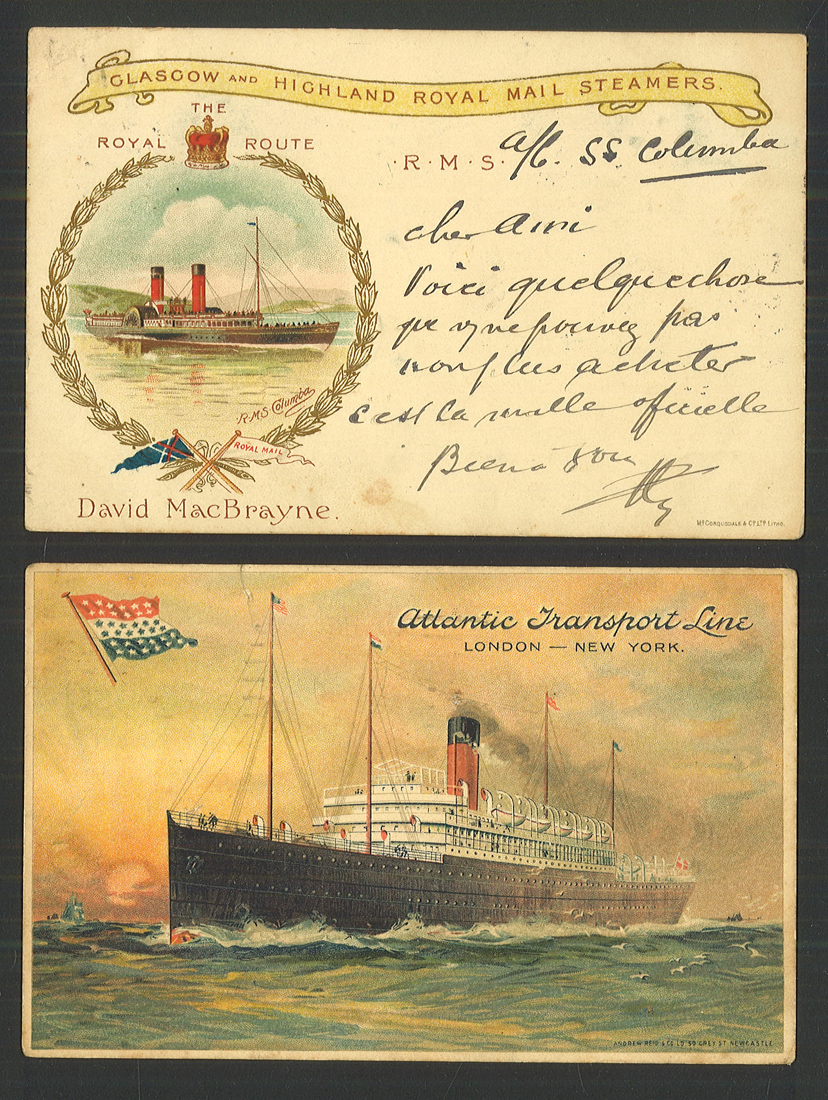 GLASGOW AND HIGHLAND ROYAL MAIL STEAMERS.
THE
ROYAL ROUTE
·R·M·S· a/b. SS Columba
cher Ami
Voici quelquechose
que v/ne pouvez pas
non plus acheter
c'est la malle officielle
Bien à vous
R.M.S. Columba
ROYAL MAIL
David MacBrayne.
McCORQUODALE & CO. LTD. LITHO.
Atlantic Transport Line
LONDON — NEW YORK.
ANDREW REID & CO LD 50 GREY ST NEWCASTLE